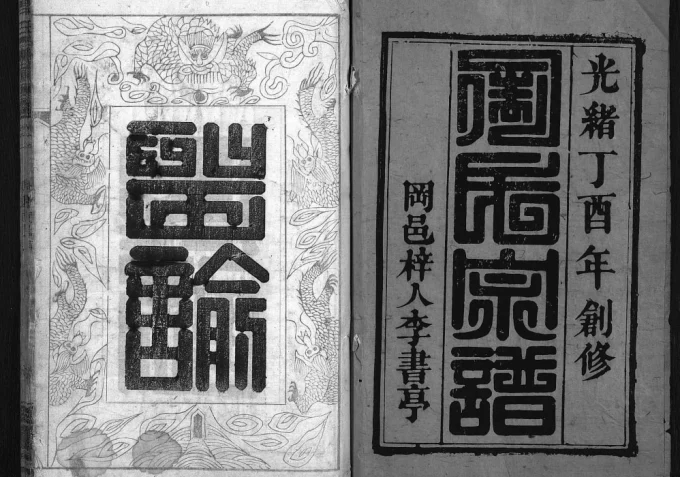 光緒丁酉年創修
氏宗譜
岡邑梓人李書亭
聖諭